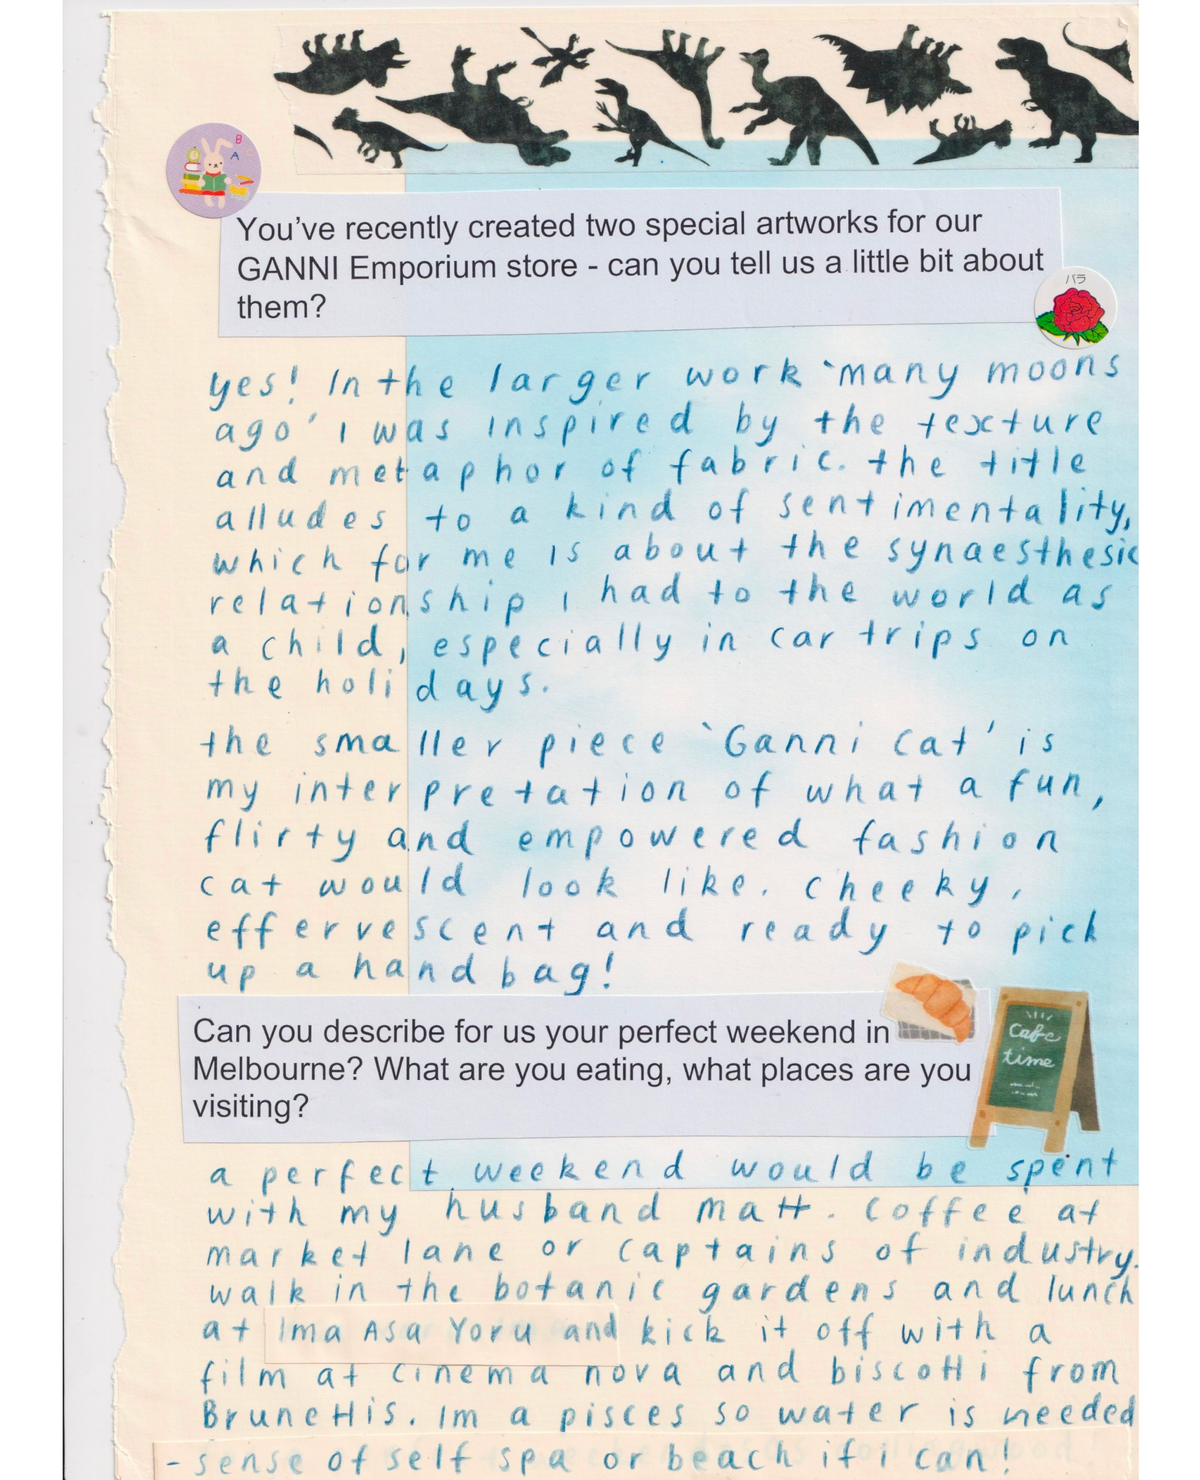 B
A
You've recently created two special artworks for our
GANNI Emporium store - can you tell us a little bit about
them?
バラ
yes! In the larger work `many moons
ago' I was inspired by the texture
and metaphor of fabric. the title
alludes to a kind of sentimentality,
which for me is about the synaesthesic
relationship I had to the world as
a child, especially in car trips on
the holidays.
the smaller piece `Ganni Cat' is
my interpretation of what a fun,
flirty and empowered fashion
cat would look like. cheeky,
effervescent and ready to pick
up a handbag!
Can you describe for us your perfect weekend in
Melbourne? What are you eating, what places are you
visiting?
Cafe
time
a perfect weekend would be spent
with my husband matt. Coffee at
market lane or captains of industry.
walk in the botanic gardens and lunch
at Ima Asa Yoru and kick it off with a
film at cinema nova and biscotti from
Brunettis. Im a pisces so water is needed
- sense of self spa or beach if i can!